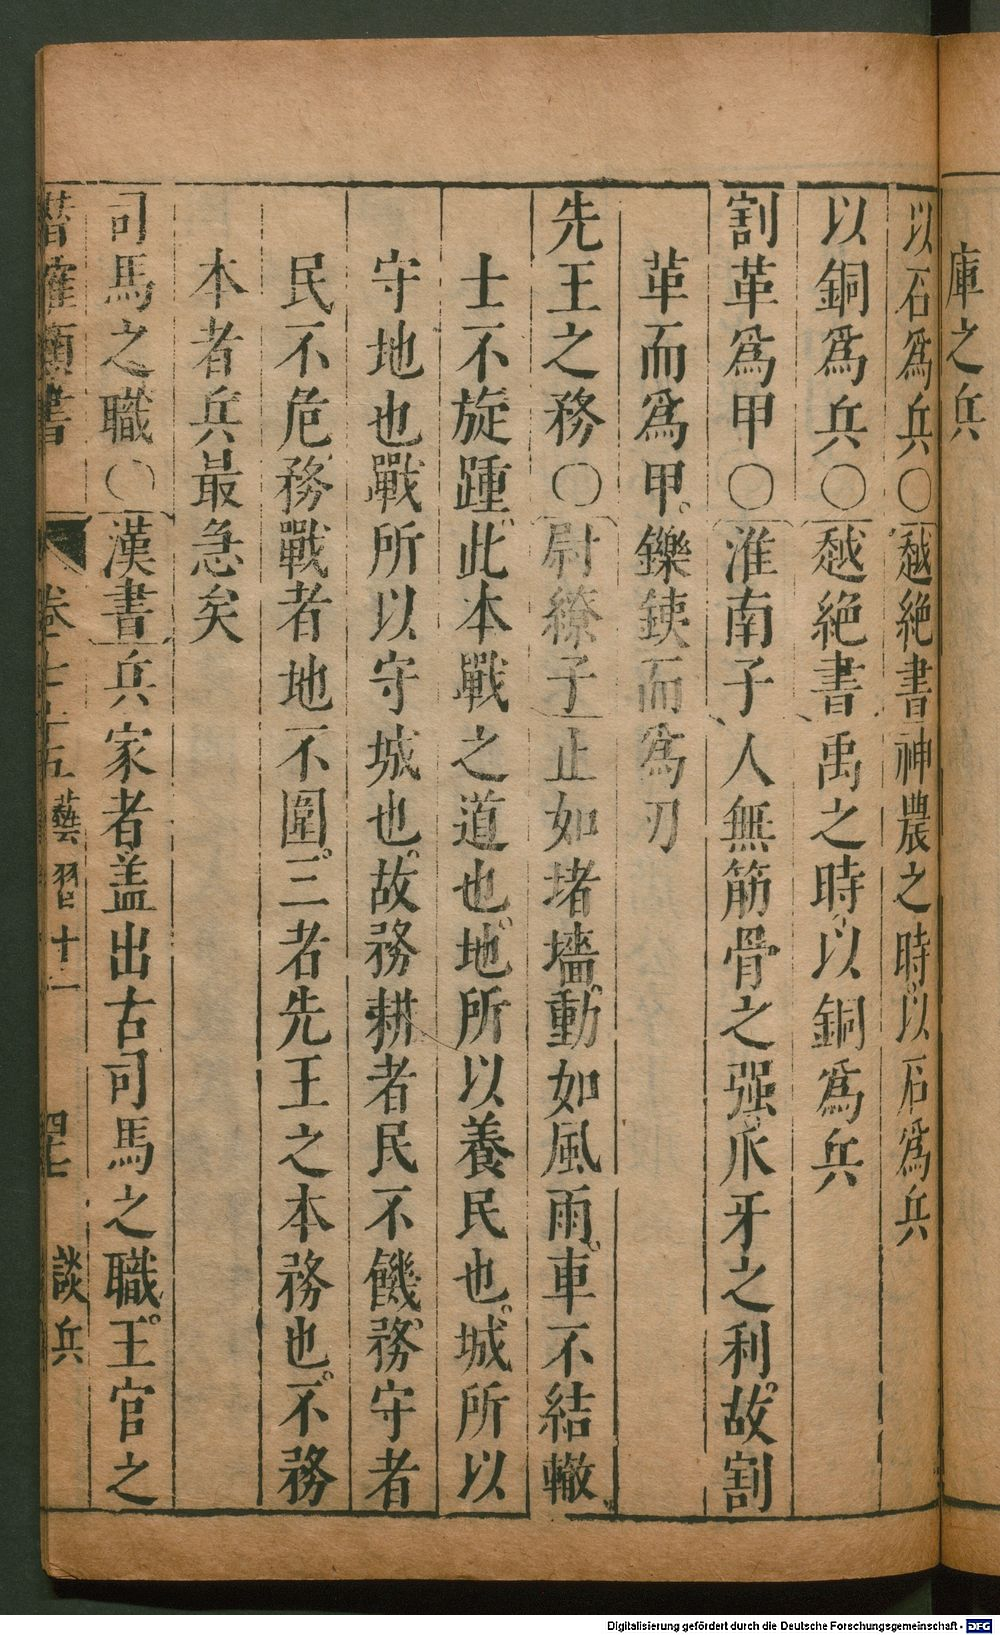 庫之兵
以石爲兵○越絶書神農之時以石爲兵
以銅爲兵○越絶書禹之時以銅爲兵
割革爲甲○淮南子人無筋骨之强爪牙之利。故割
革而爲甲。鑠鐵而爲刃
先王之務○尉繚子止如堵墻。動如風雨。車不結轍
士不旋踵。此本戰之道也。地所以養民也。城所以
守地也戰所以守城也。故務耕者民不饑。務守者
民不危。務戰者地不圍。三者先王之本務也。不務
本者兵最急矣
司馬之職○漢書兵家者盖出古司馬之職。王官之
卷七十五 藝習十二 四七 談兵
Digitalisierung gefördert durch die Deutsche Forschungsgemeinschaft - DFG